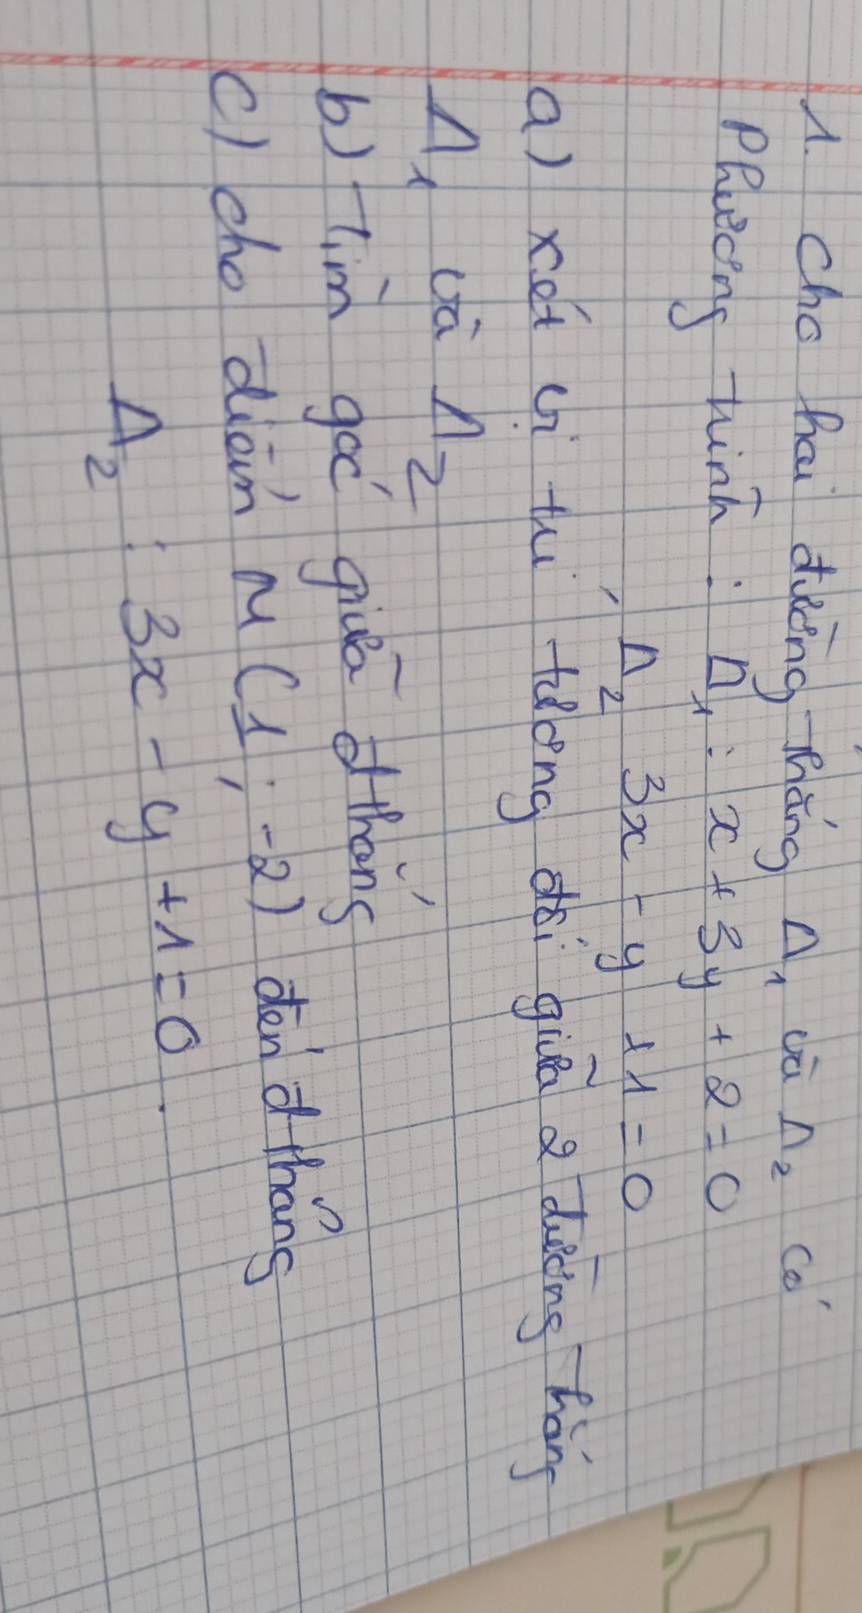 1. Cho hai đường thẳng Δ₁ và Δ₂ có
phương trình : Δ₁ : x + 3y + 2 = 0
Δ₂ 3x - y + 1 = 0
a) xét vị trí tương đối giữa 2 đường thẳng
Δ₁ và Δ₂
b) Tìm góc giữa đthẳng
c) cho điểm M (1 ; -2) đến đthẳng
Δ₂ : 3x - y + 1 = 0.